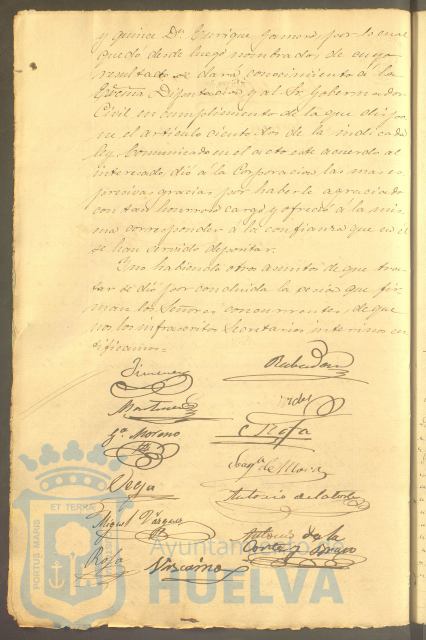 y quince Dn. Enrique Zamora, por lo cual
quedó desde luego nombrado, de cuyo
resultado se dará conocimiento á la
Excma Diputacion y al Sr. Goberna-dor
Civil en cumplimiento de lo que dispo-
ne el artículo ciento dos de la indicada
ley. Comunicado en el acto este acuerdo al
interesado, dió á la Corporacion las mas es-
presivas gracias por haberle agraciado
con tan honroso cargo y ofreció á la mis-
ma corresponder á la confianza que en él
se han servido depositar.
Y no habiendo otros asuntos de que tra-
tar se dió por concluida la sesion que fir-
man los Señores concurrentes, de que
nos los infrascritos Secretarios interinos cer-
tificamos=
Jimenez
Martinez
Ga. Moreno
Rofa
Vega
Joaqn. de Mora
Antonio de la Corte
Miguel Vazquez
Antonio de la
Corte y Bravo
Rofa Vizcaino
ET TERRÆ
PORTUS MARIS
Ayuntamiento
HUELVA